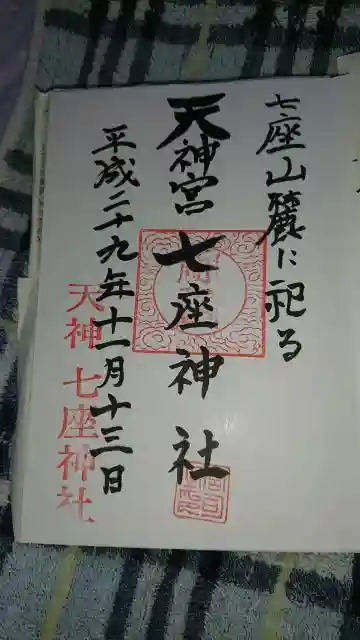 七座山麓に祀る
天神宮七座神社
平成二十九年十一月十三日
天神 七座神社